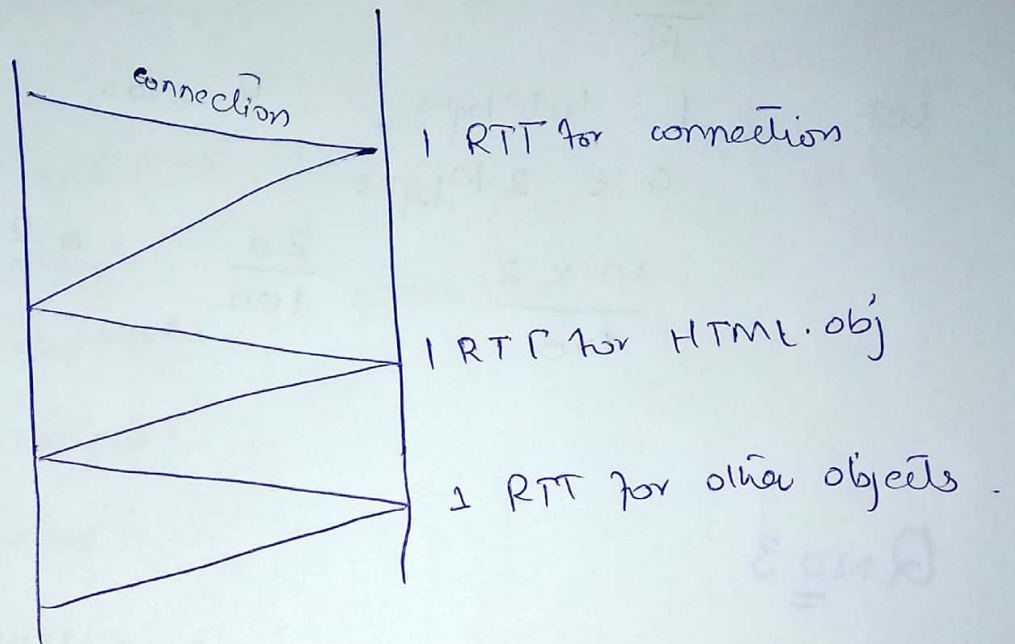 connection
1 RTT for connection
1 RTT for HTML. obj
1 RTT for other objects.